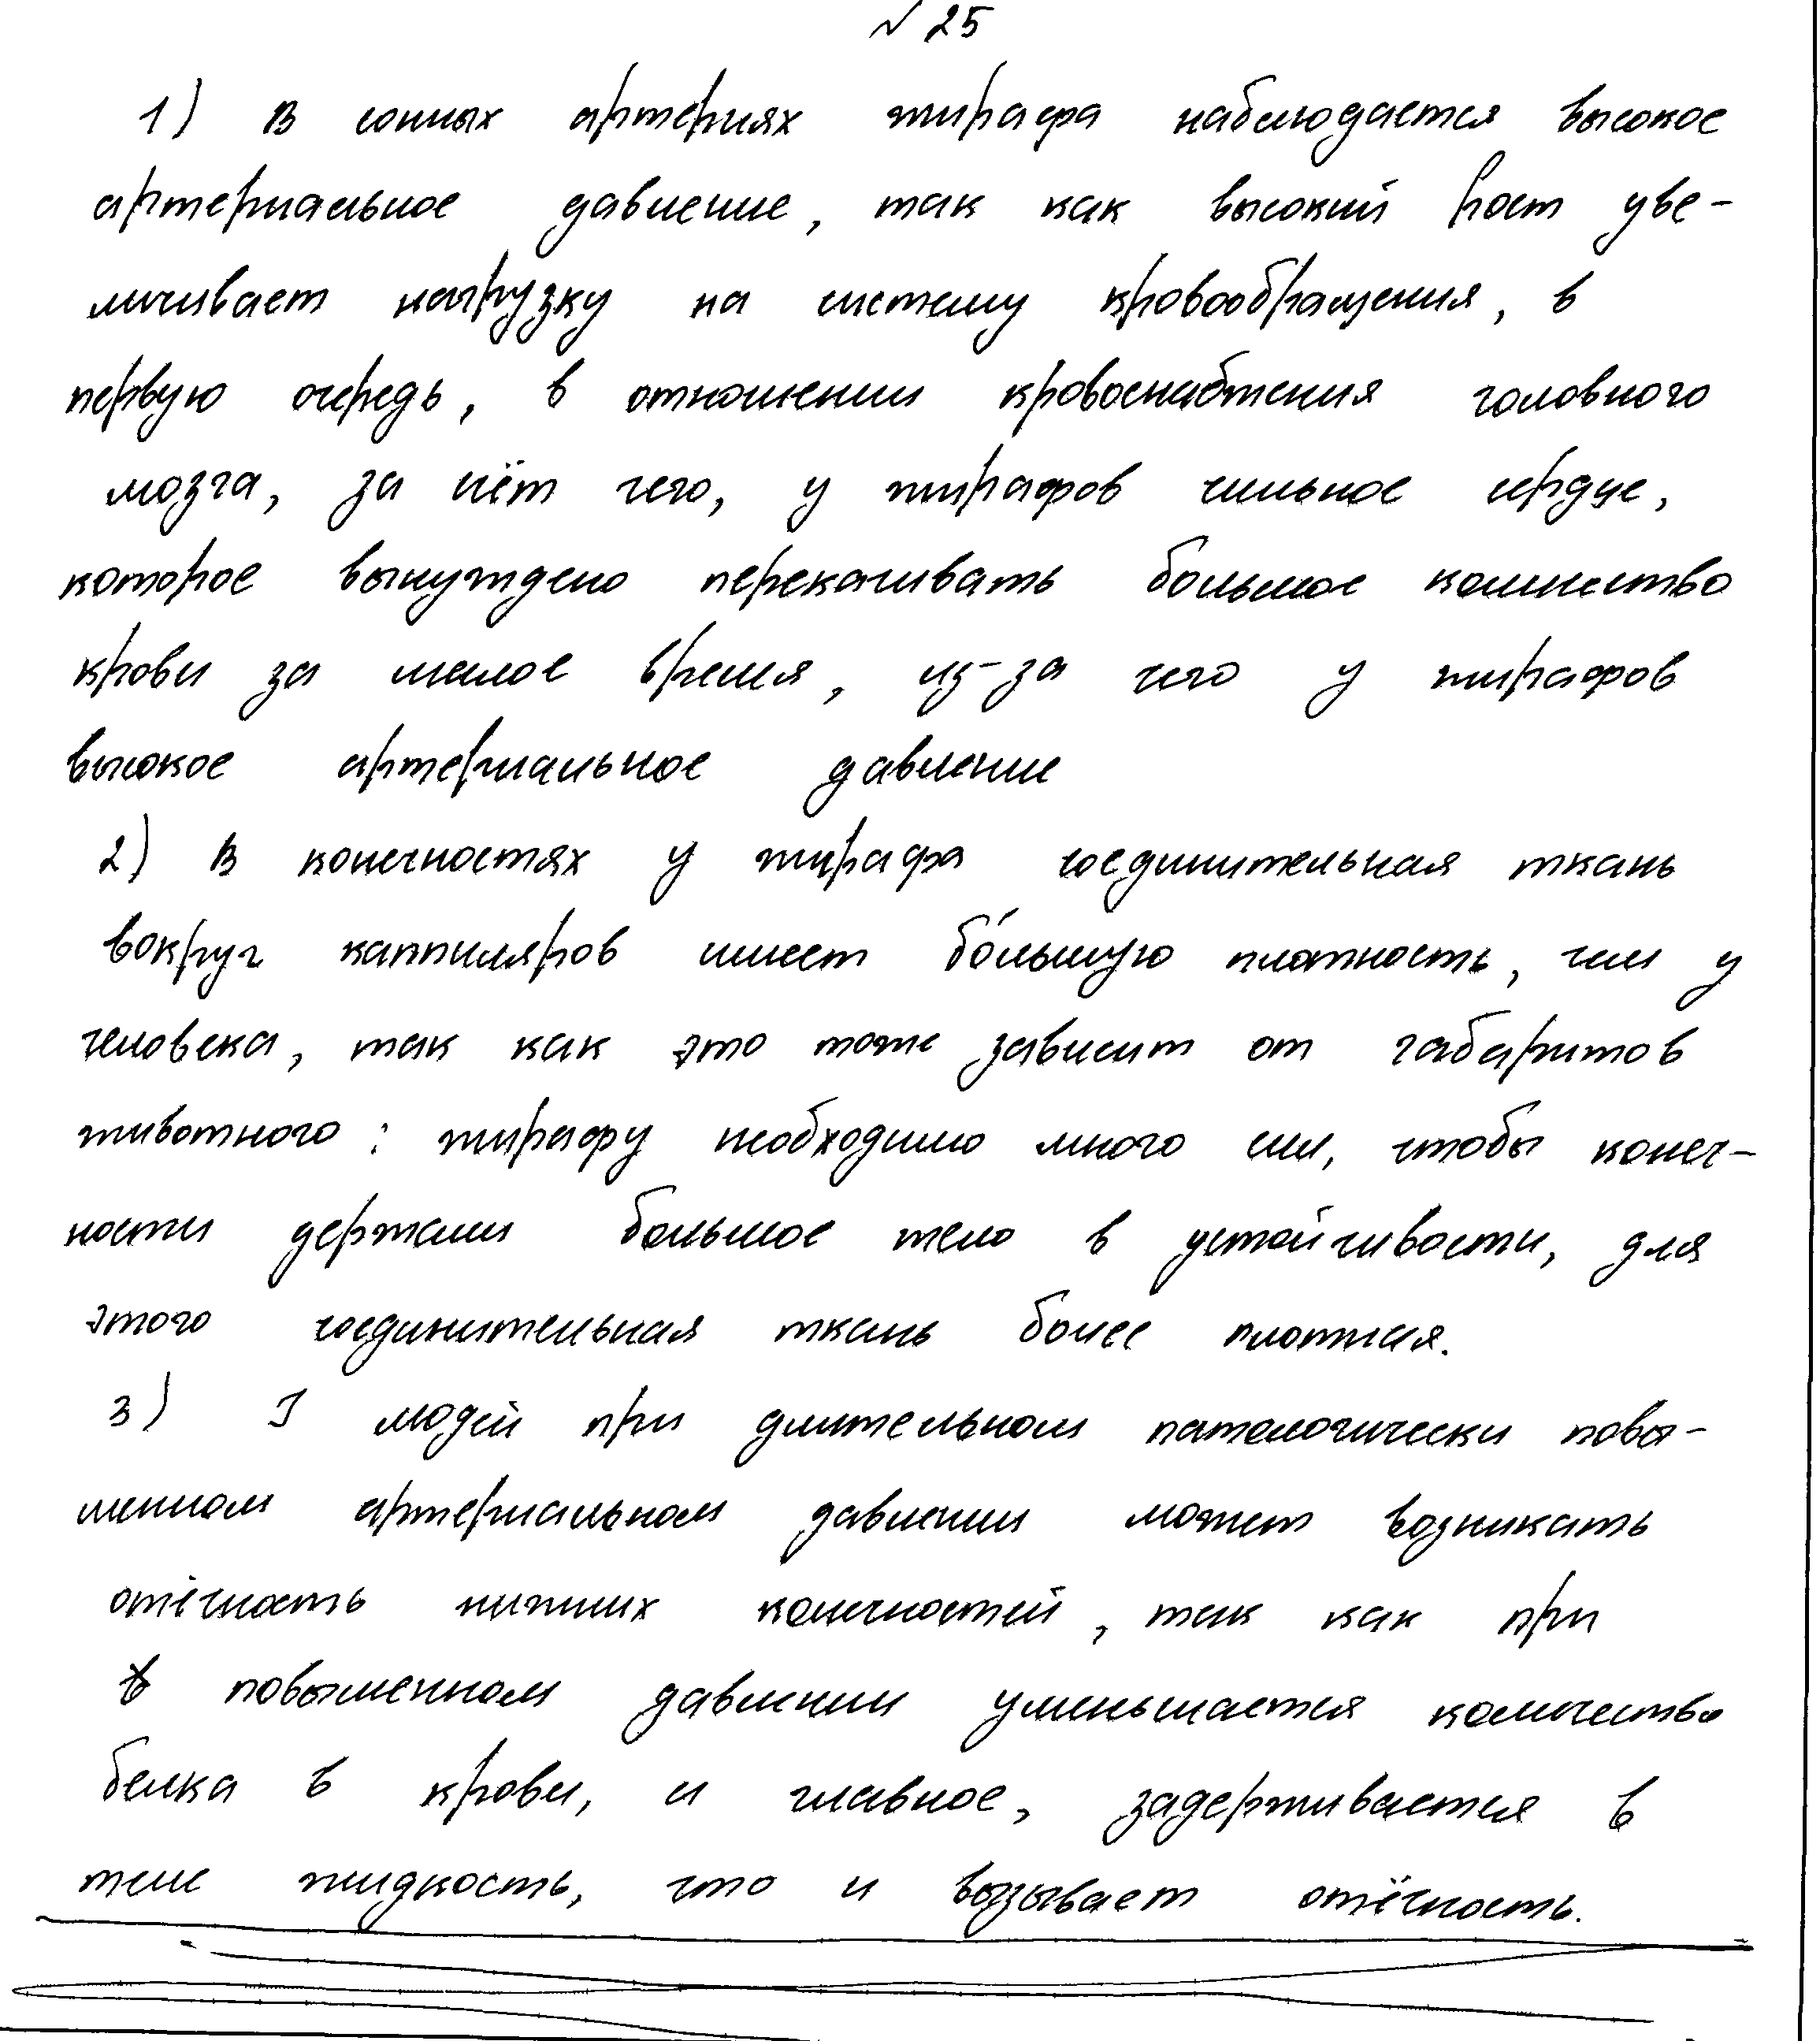 № 25
1) В сонных артериях жирафа наблюдается высокое
артериальное давление, так как высокий рост уве-
личивает нагрузку на систему кровообращения, в
первую очередь, в отношении кровоснабжения головного
мозга, за счёт чего, у жирафов сильное сердце,
которое вынуждено перекачивать большое количество
крови за малое время, из-за чего у жирафов
высокое артериальное давление
2) В конечностях у жирафа соединительная ткань
вокруг каппиляров имеет бо́льшую плотность, чем у
человека, так как это тоже зависит от габаритов
животного: жирафу необходимо много сил, чтобы конеч-
ности держали большое тело в устойчивости, для
этого соединительная ткань более плотная.
3) У людей при длительном патологически повы-
шенном артериальном давлении может возникать
отёчность нижних конечностей, так как при
повышенном давлении уменьшается количество
белка в крови, и главное, задерживается в
теле жидкость, что и вызывает отёчность.